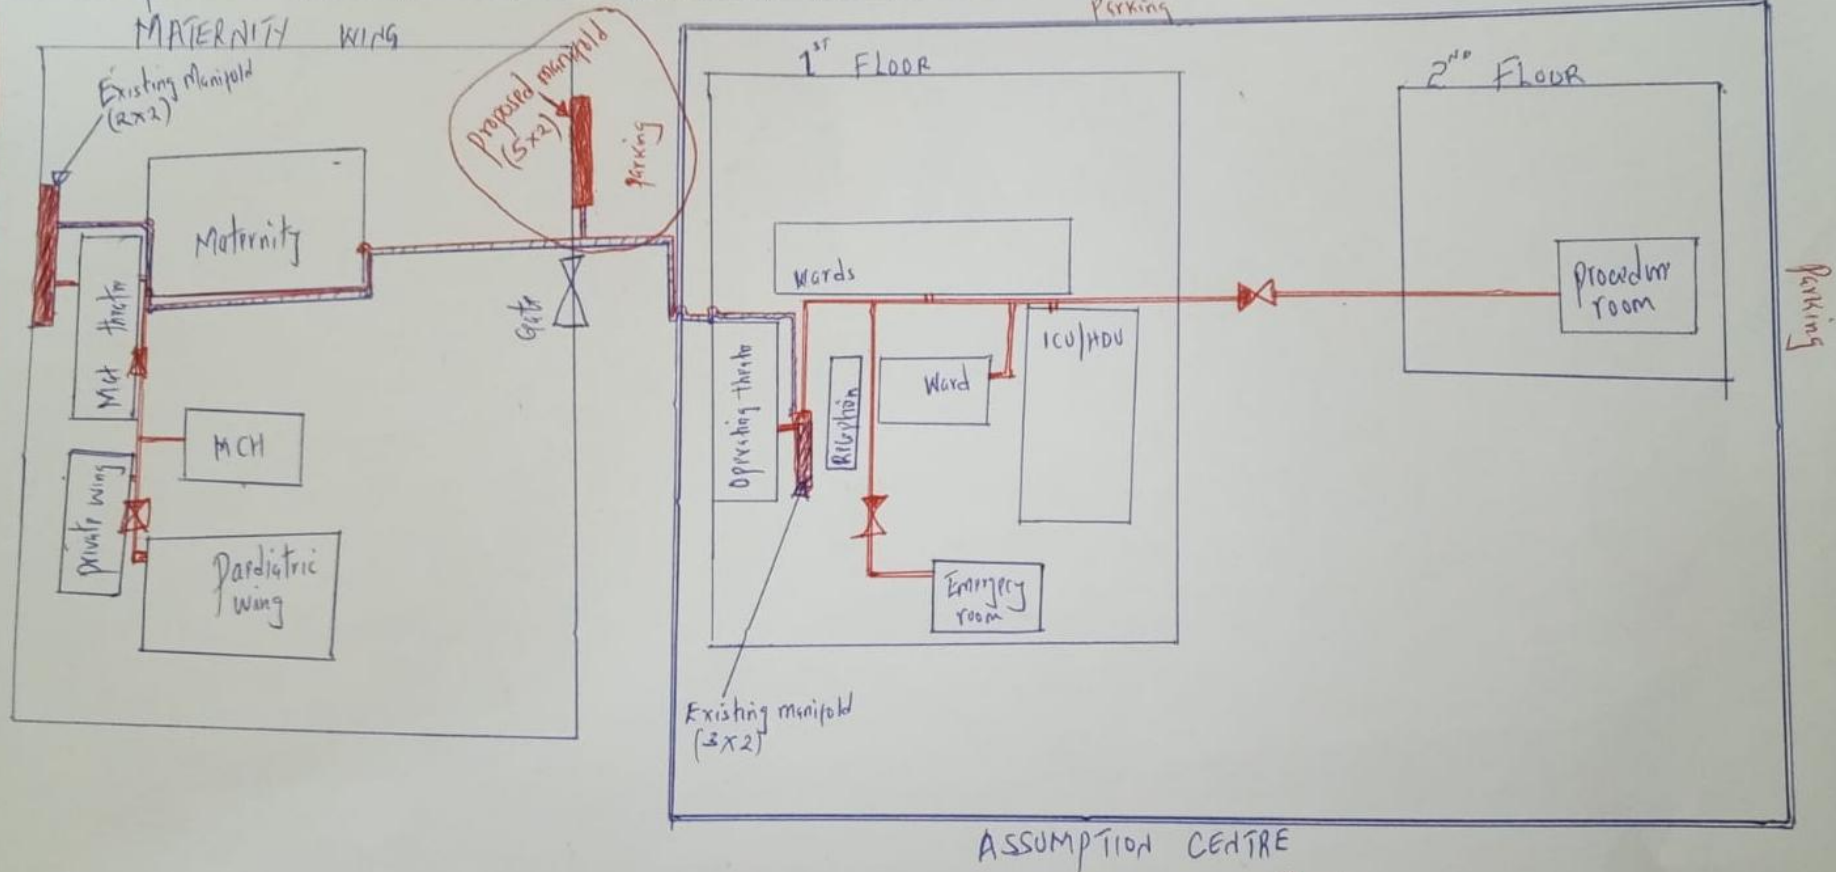 Parking
MATERNITY WING
Existing Manifold
(2x2)
Maternity
Mat theatre
MCH
private wing
Paediatric
wing
proposed manifold
(5x2)
parking
Gate
1ST FLOOR
Wards
Operating theatre
Reception
Ward
ICU/HDU
Emergecy
room
Existing manifold
(3x2)
2ND FLOOR
procedure
room
Parking
ASSUMPTION CENTRE